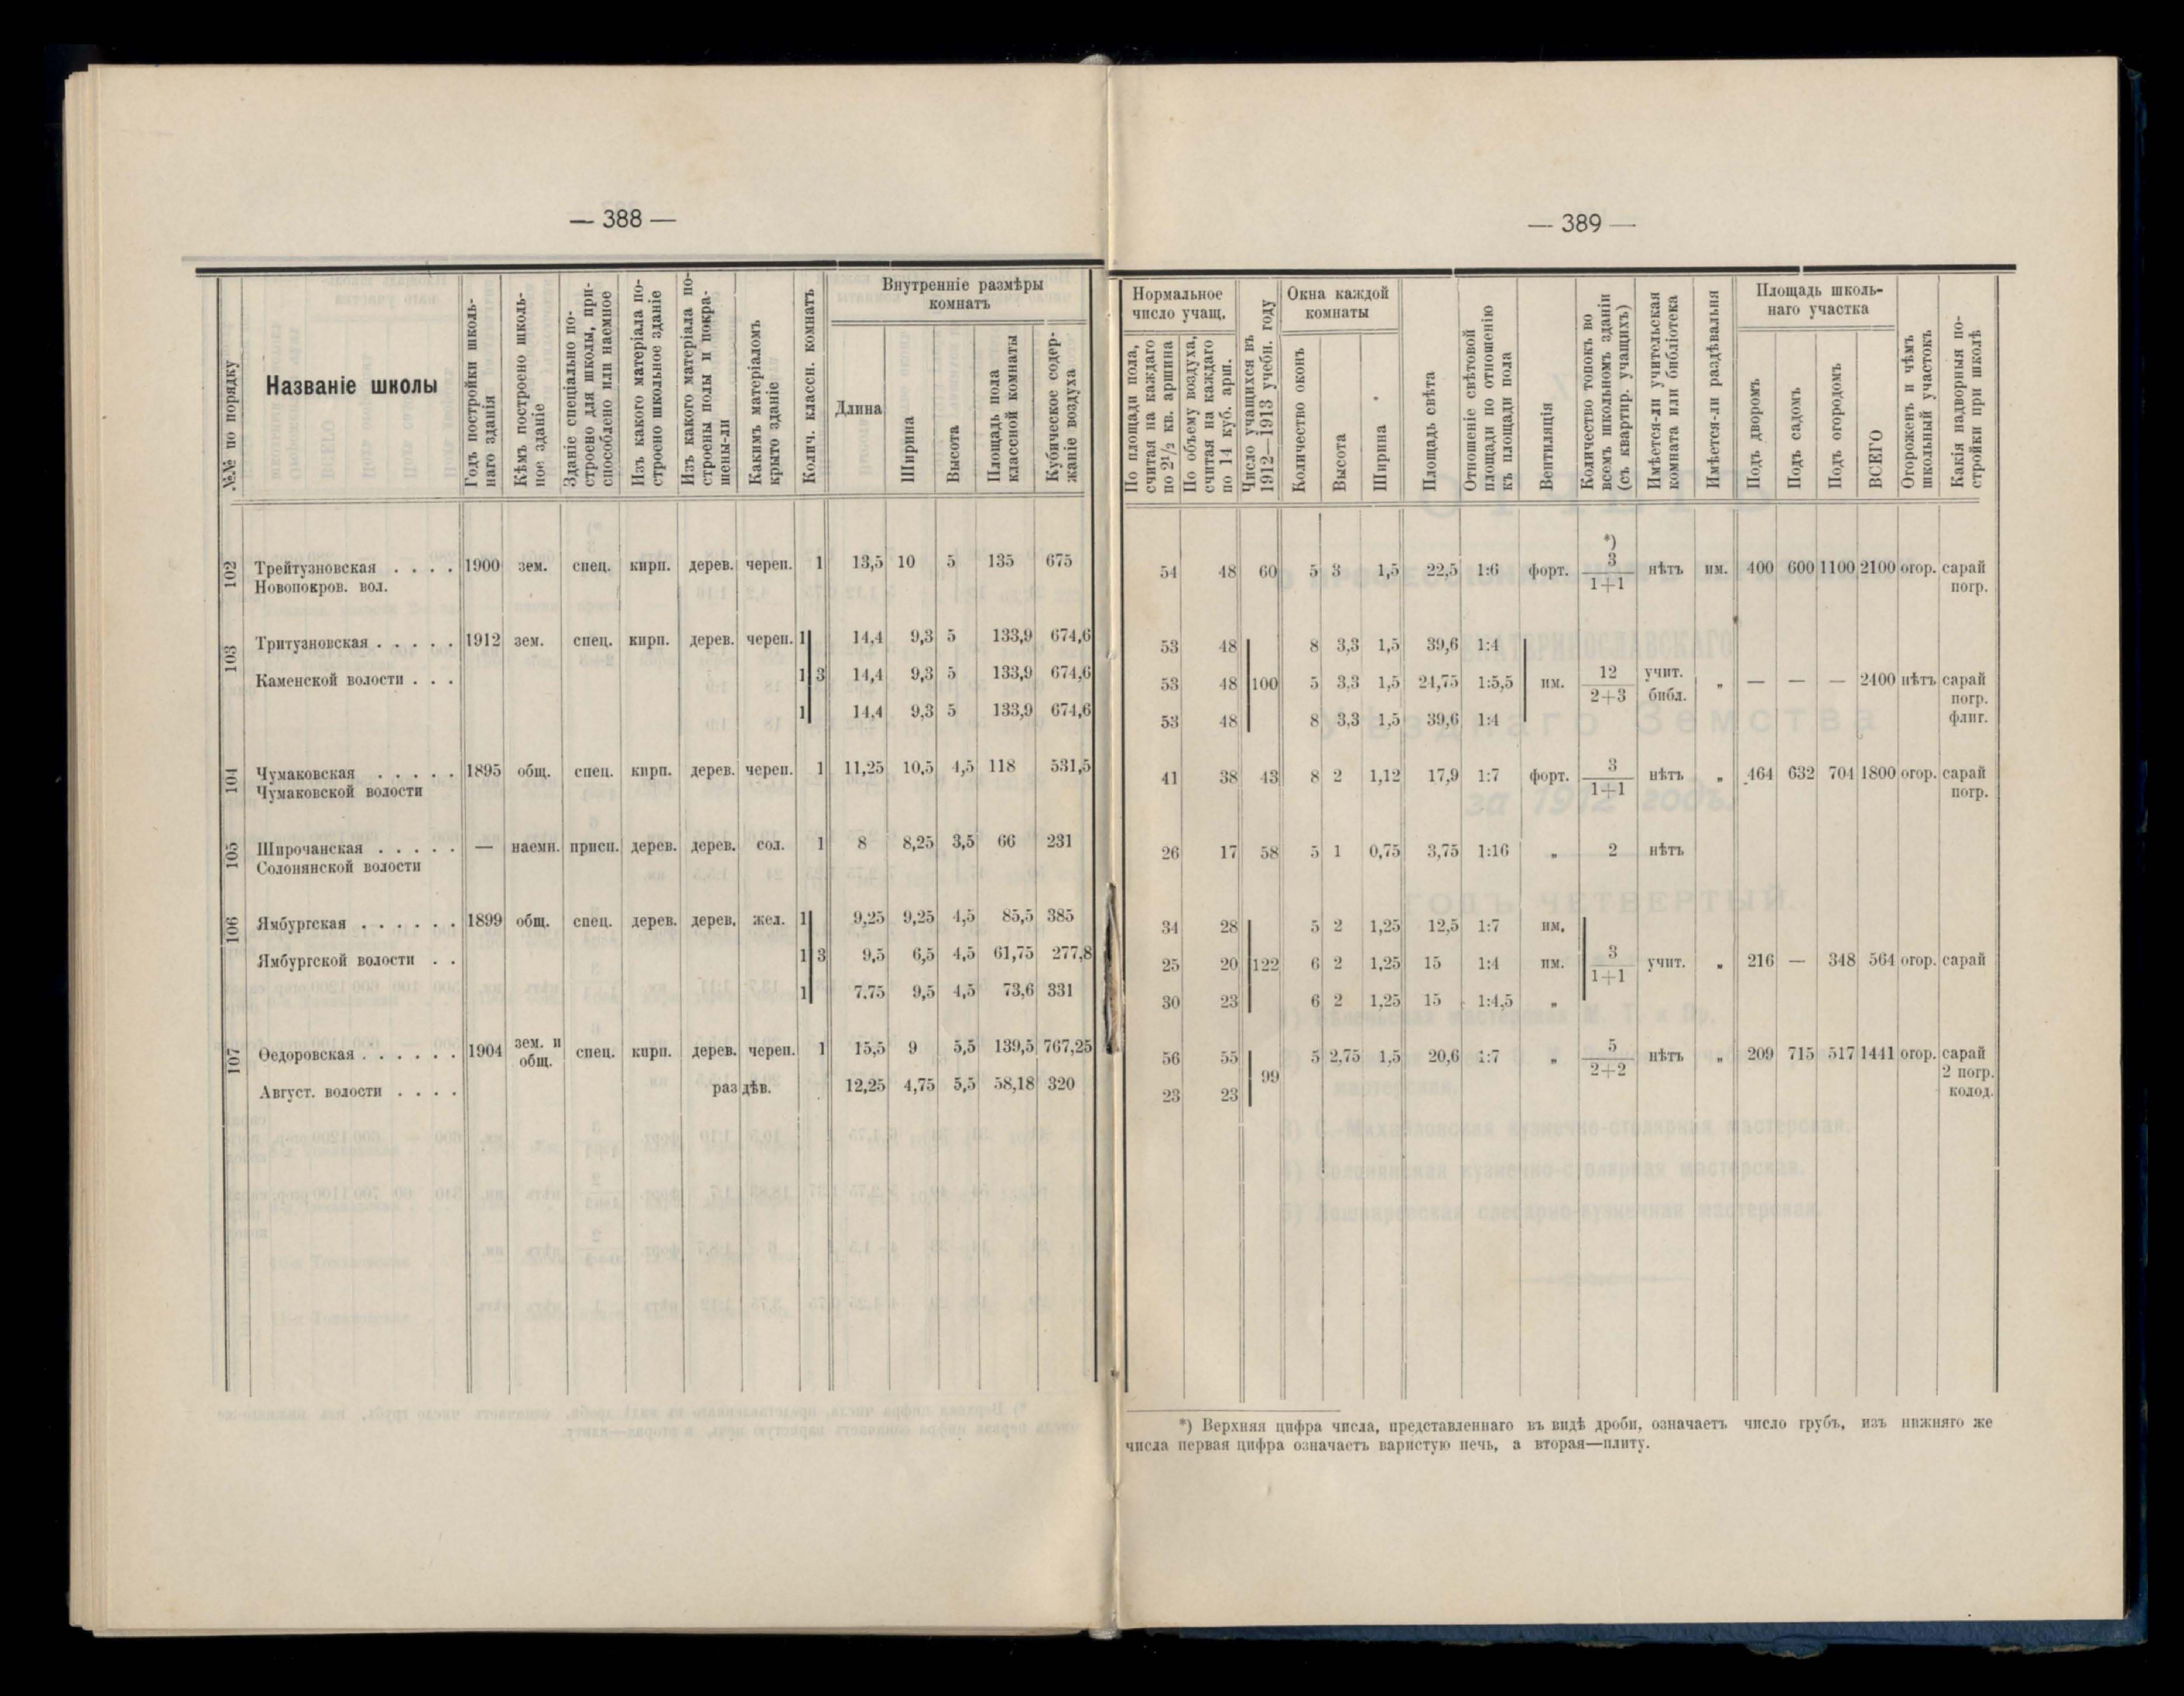 — 388 —
№№ по порядку
Названіе школы
Годъ постройки школь-
наго зданія
Кѣмъ построено школь-
ное зданіе
Зданіе спеціально по-
строено для школы, при-
способлено или наемное
Изъ какого матеріала по-
строено школьное зданіе
Изъ какого матеріала по-
строены полы и покра-
шены-ли
Какимъ матеріаломъ
крыто зданіе
Колич. классн. комнатъ
Внутренніе размѣры
комнатъ
Длина
Ширина
Высота
Площадь пола
классной комнаты
Кубическое содер-
жаніе воздуха
102 Трейтузновская . . . . 1900 зем. спец. кирп. дерев. череп. 1 13,5 10 5 135 675
Новопокров. вол.
103 Тритузновская . . . . . 1912 зем. спец. кирп. дерев. череп. 1 14,4 9,3 5 133,9 674,6
Каменской волости . . . 1 3 14,4 9,3 5 133,9 674,6
1 14,4 9,3 5 133,9 674,6
104 Чумаковская . . . . . 1895 общ. спец. кирп. дерев. череп. 1 11,25 10,5 4,5 118 531,5
Чумаковской волости
105 Широчанская . . . . . — наемн. присп. дерев. дерев. сол. 1 8 8,25 3,5 66 231
Солонянской волости
106 Ямбургская . . . . . . 1899 общ. спец. дерев. дерев. жел. 1 9,25 9,25 4,5 85,5 385
Ямбургской волости . . 1 3 9,5 6,5 4,5 61,75 277,8
1 7,75 9,5 4,5 73,6 331
107 Ѳедоровская . . . . . . 1904 зем. и общ. спец. кирп. дерев. череп. 1 15,5 9 5,5 139,5 767,25
Август. волости . . . . раздѣв. 12,25 4,75 5,5 58,18 320
— 389 —
Нормальное
число учащ.
По площади пола,
считая на каждаго
по 2½ кв. аршина
По объему воздуха,
считая на каждаго
по 14 куб. арш.
Число учащихся въ
1912—1913 учебн. году
Окна каждой
комнаты
Количество оконъ
Высота
Ширина
Площадь свѣта
Отношеніе свѣтовой
площади по отношенію
къ площади пола
Вентиляція
Количество топокъ во
всемъ школьномъ зданіи
(съ квартир. учащихъ)
Имѣется-ли учительская
комната или библіотека
Имѣется-ли раздѣвальня
Площадь школь-
наго участка
Подъ дворомъ
Подъ садомъ
Подъ огородомъ
ВСЕГО
Огороженъ и чѣмъ
школьный участокъ
Какія надворныя по-
стройки при школѣ
*)
54 48 60 5 3 1,5 22,5 1:6 форт. 3/1+1 нѣтъ им. 400 600 1100 2100 огор. сарай
погр.
53 48 8 3,3 1,5 39,6 1:4
53 48 100 5 3,3 1,5 24,75 1:5,5 им. 12/2+3 учит. библ. „ — — — 2400 нѣтъ сарай
погр.
53 48 8 3,3 1,5 39,6 1:4 флиг.
41 38 43 8 2 1,12 17,9 1:7 форт. 3/1+1 нѣтъ „ 464 632 704 1800 огор. сарай
погр.
26 17 58 5 1 0,75 3,75 1:16 „ 2 нѣтъ
34 28 5 2 1,25 12,5 1:7 им.
25 20 122 6 2 1,25 15 1:4 им. 3/1+1 учит. „ 216 — 348 564 огор. сарай
30 23 6 2 1,25 15 1:4,5 „
56 55 99 5 2,75 1,5 20,6 1:7 „ 5/2+2 нѣтъ „ 209 715 517 1441 огор. сарай
2 погр.
23 23 колод.
*) Верхняя цифра числа, представленнаго въ видѣ дроби, означаетъ число грубъ, изъ нижняго же
числа первая цифра означаетъ варистую печь, а вторая—плиту.